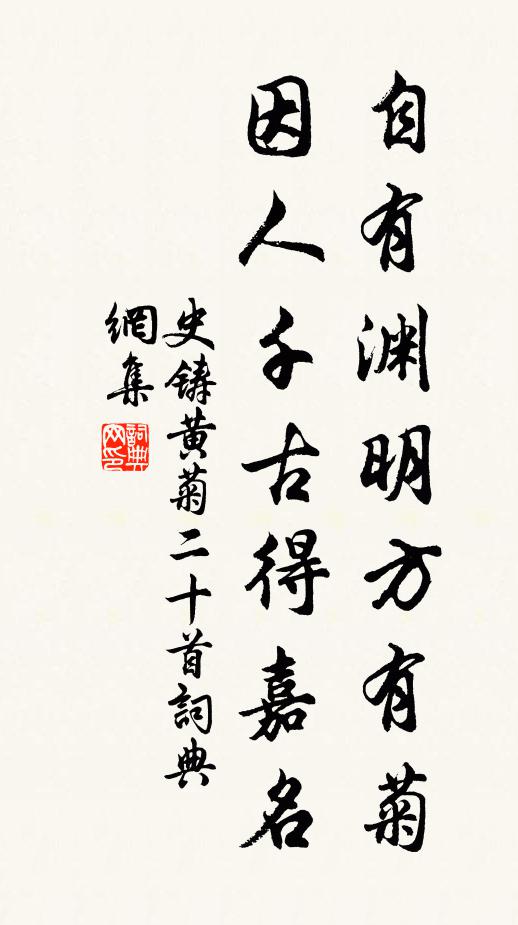 自有渊明方有菊
因人千古得嘉名
史鑄黄菊二十首詞典
網集
詞典
网印